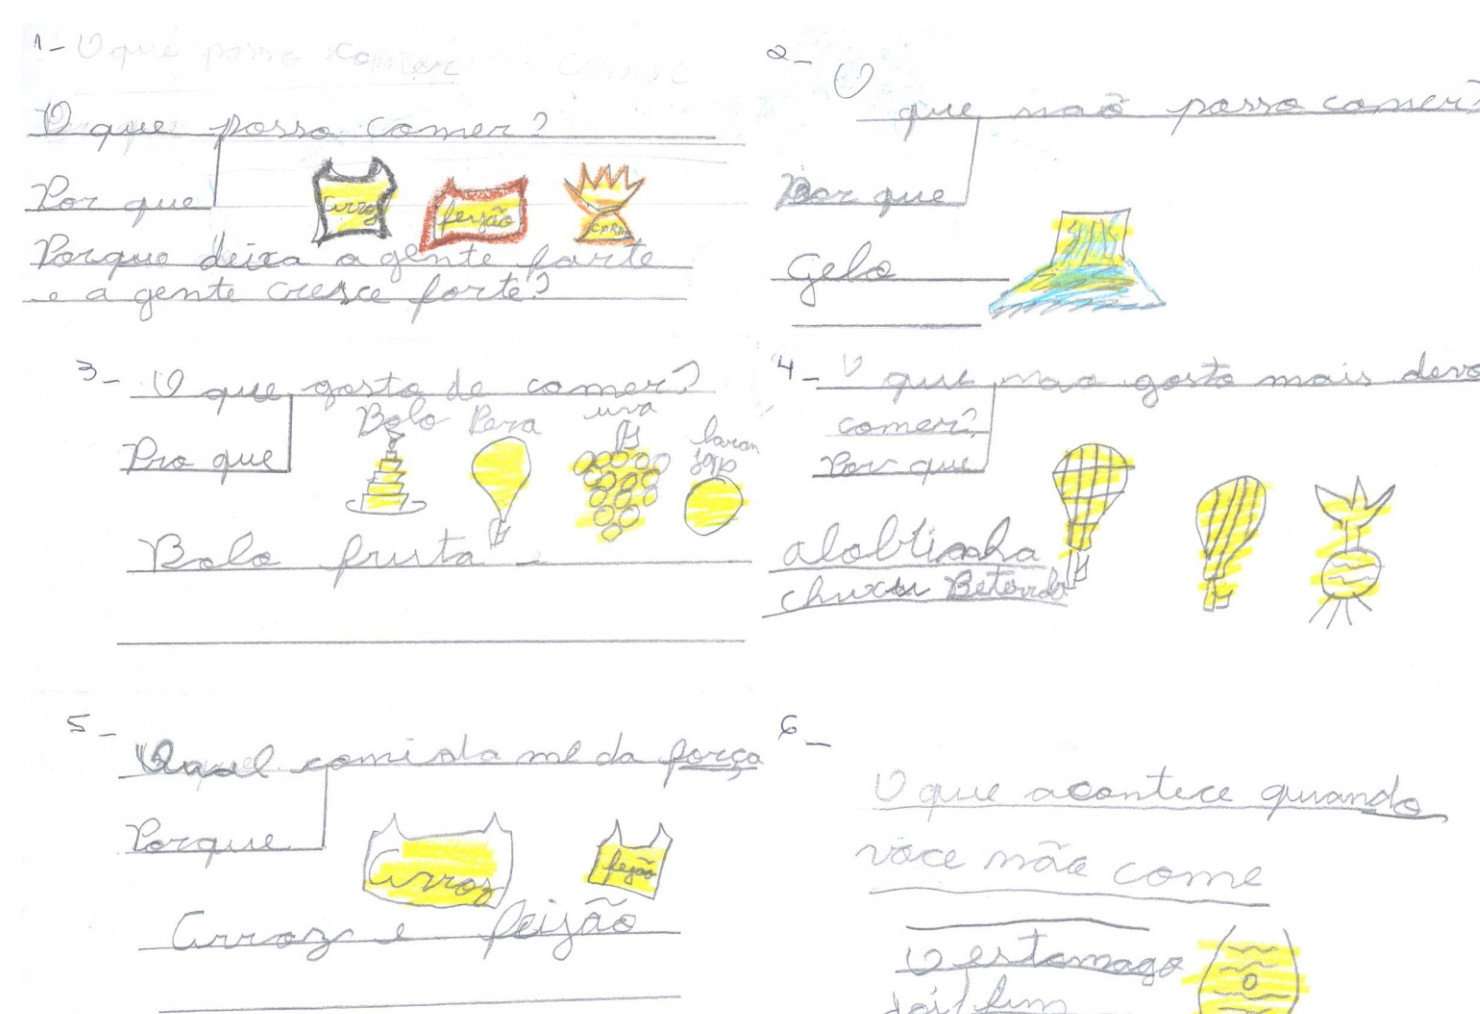 1- O que posso comer
O que posso comer?
Por que
arroz
feijão
Porque deixa a gente farte
e a gente cresce forte?
2- O
que não posso comer?
Por que
Gelo
3- O que gosta de comer?
Bolo Pera uva laran
Pro que
Bolo fruta -
4- O que nao gosto mais devo
comer?
Por que
alobtinha
chuxu Beterrdo
5-
Qual comida me da força
Porque
Arroz
feijão
Arroz e feijão
6-
O que acontece quando
voce não come
O estamago
doi